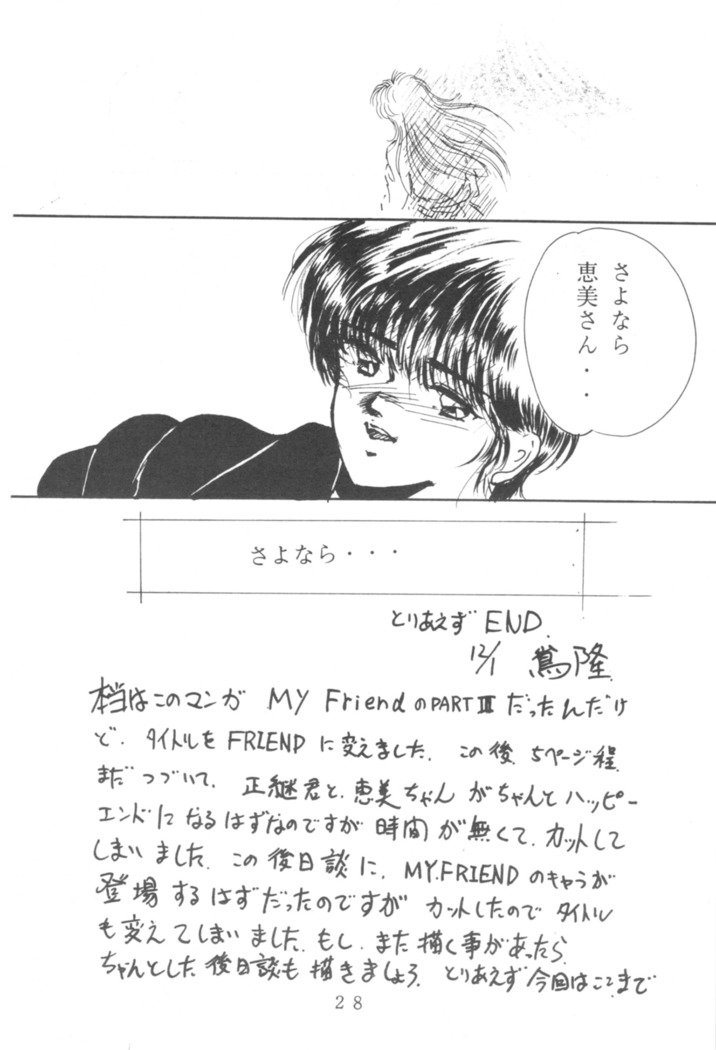 さよなら
恵美さん・・
さよなら・・・
とりあえず END.
12/1 鴬隆
本当はこのマンガ MY FriendのPARTⅢだったんだけ
ど、タイトルをFRIENDに変えました。この後5ページ程
まだつづいて、正継君と、恵美ちゃんがちゃんとハッピー
エンドになるはずなのですが時間が無くて、カットして
しまいました。この後日談に、MY.FRIENDのキャラが
登場するはずだったのですがカットしたのでタイトル
も変えてしまいました。もし、また描く事があったら、
ちゃんとした後日談も描きましょう。とりあえず今回はここまで
28